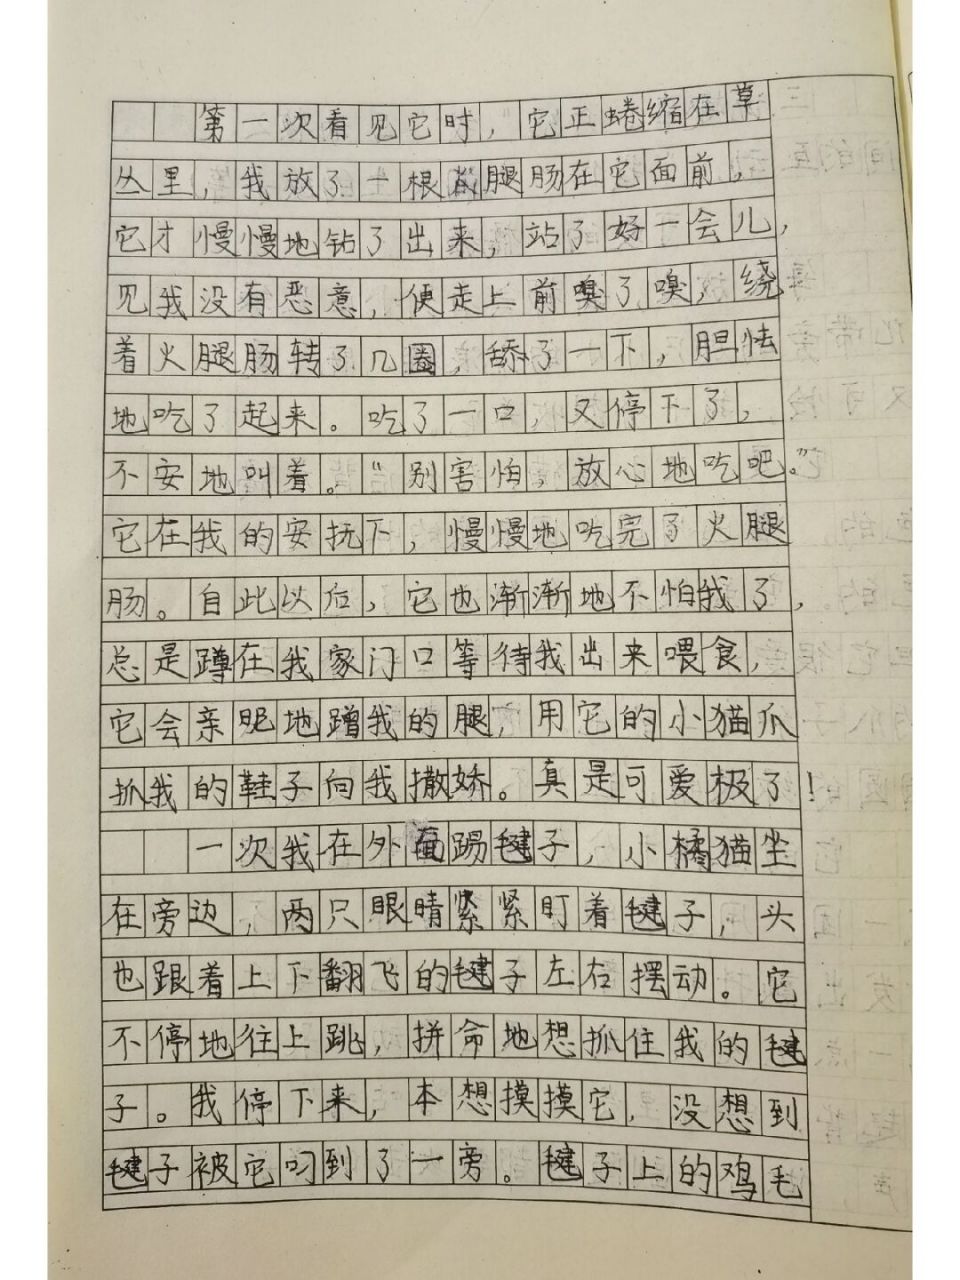 第一次看见它时，它正蜷缩在草
丛里，我放了一根火腿肠在它面前，
它才慢慢地钻了出来，站了好一会儿，
见我没有恶意，便走上前嗅了嗅，绕
着火腿肠转了几圈，舔了一下，胆怯
地吃了起来。吃了一口，又停下了，
不安地叫着。“别害怕，放心地吃吧。”
它在我的安抚下，慢慢地吃完了火腿
肠。自此以后，它也渐渐地不怕我了，
总是蹲在我家门口等待我出来喂食，
它会亲昵地蹭我的腿，用它的小猫爪
抓我的鞋子向我撒娇。真是可爱极了！
一次我在外面踢毽子，小橘猫坐
在旁边，两只眼睛紧紧盯着毽子，头
也跟着上下翻飞的毽子左右摆动。它
不停地往上跳，拼命地想抓住我的毽
子。我停下来，本想摸摸它，没想到
毽子被它叼到了一旁。毽子上的鸡毛